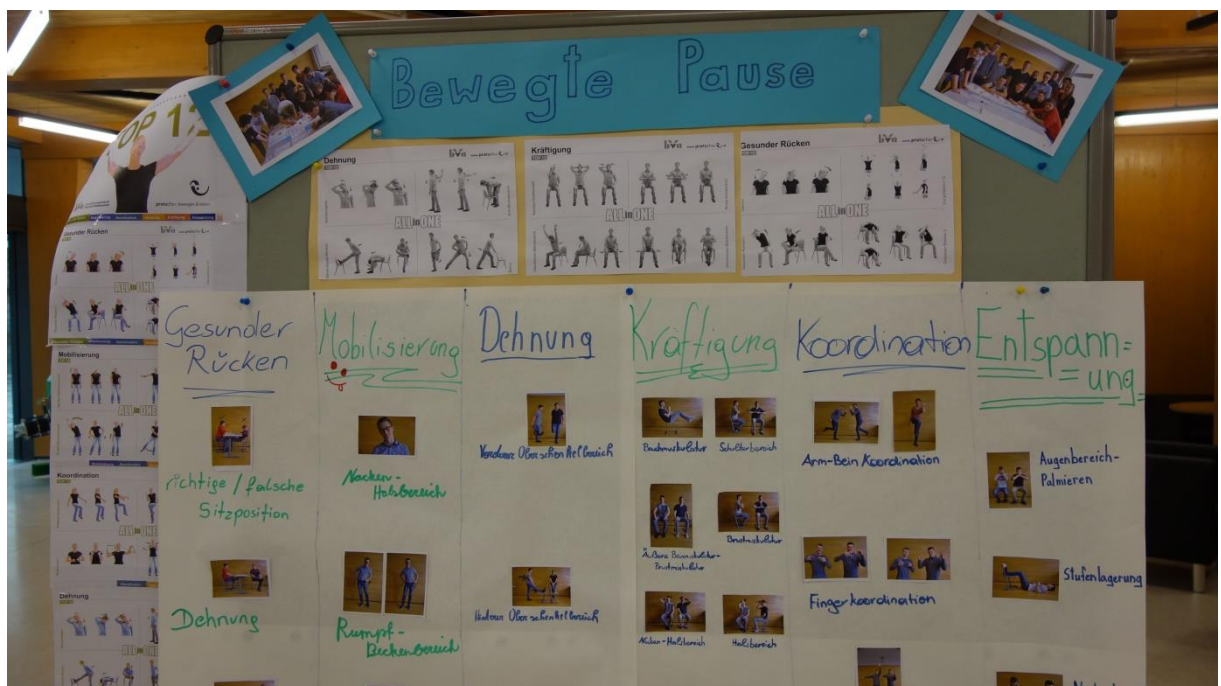 Bewegte Pause
TOP 12
Dehnung
TOP 12
ALL in ONE
Kräftigung
TOP 12
ALL in ONE
Gesunder Rücken
TOP 12
ALL in ONE
Gesunder Rücken
ALL in ONE
Mobilisierung
ALL in ONE
Koordination
ALL in ONE
Dehnung
Gesunder
Rücken
richtige / falsche
Sitzposition
Dehnung
Mobilisierung
Nacken-
Halsbereich
Rumpf-
Beckenbereich
Dehnung
Vorderer Oberschenkelbereich
Hinterer Oberschenkelbereich
Kräftigung
Bauchmuskulatur
Schulterbereich
Brustmuskulatur
Nacken-Halsbereich
Halsbereich
Koordination
Arm-Bein Koordination
Fingerkoordination
Entspann=
=ung
Augenbereich-
Palmieren
Stufenlagerung